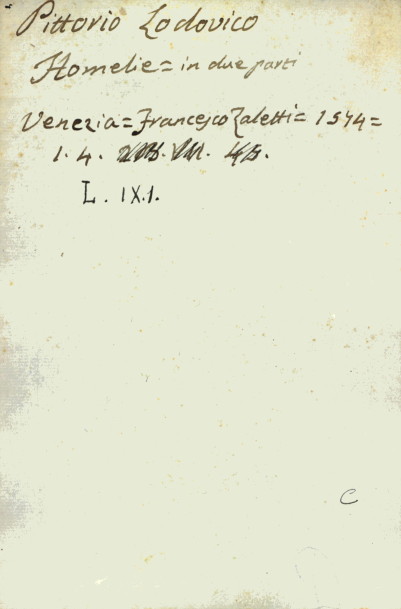 Pittorio Lodovico
Homelie = in due parti
Venezia = Francesco Zaletti = 1574 =
1. 4.
L. IX.1.
C